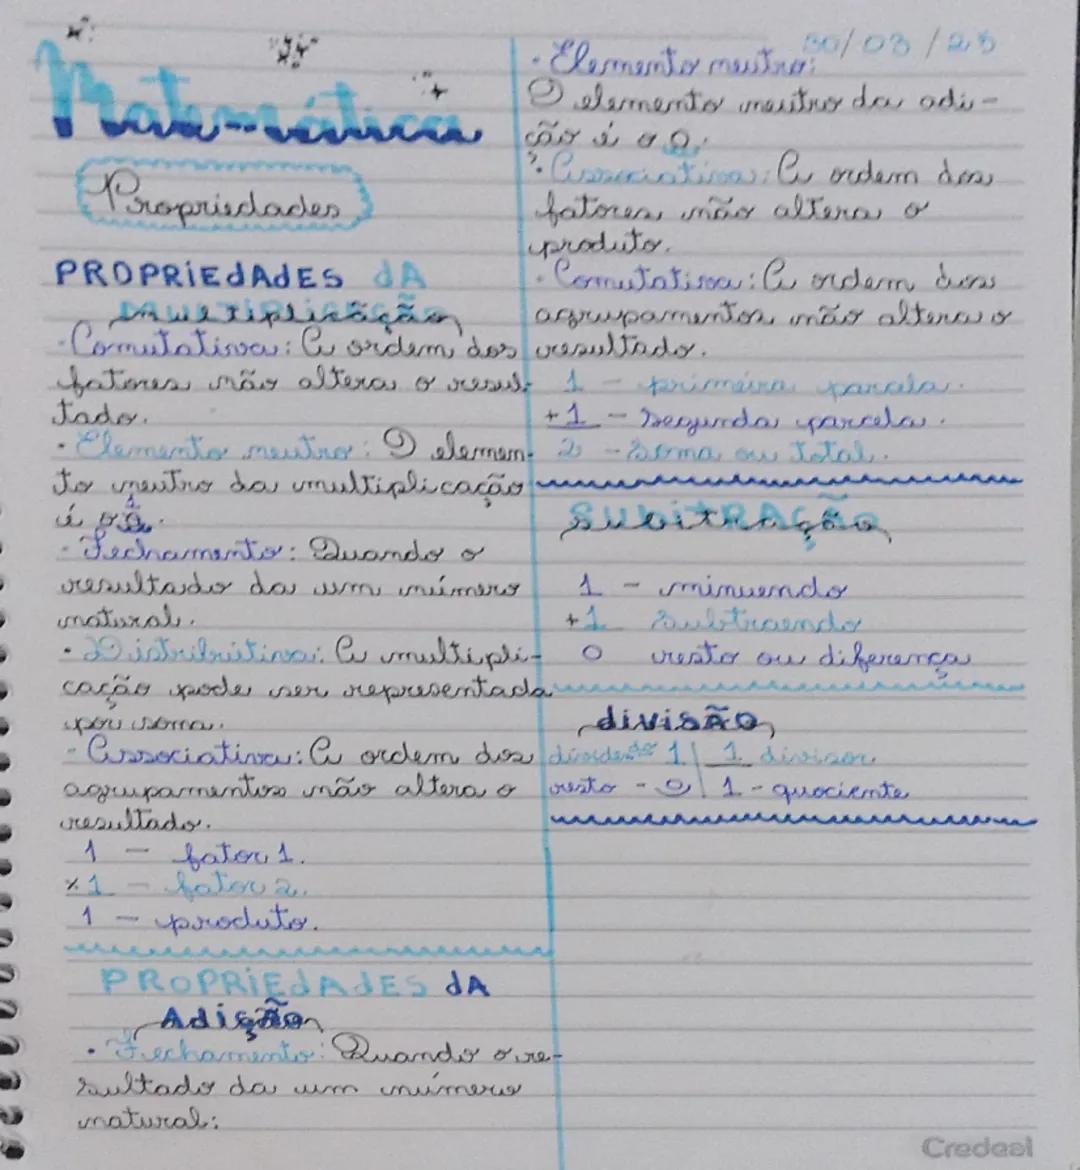 Matemática
Propriedades
PROPRIEdAdES dA
Multiplicação
· Comutativa: A ordem dos
fatores não altera o resul-
tado.
· Elemento neutro: O elemen-
to neutro da multiplicação
é o
· Fechamento: Quando o
resultado da um número
natural.
· Distributiva: A multipli-
cação pode ser representada
por soma.
· Associativa: A ordem dos
agrupamentos não altera o
resultado.
1 - fator 1.
x1 - fator 2.
1 - produto.
PROPRIEdAdES dA
Adição
· Fechamento: Quando o re-
sultado da um número
natural:
30/03/23
· Elemento neutro:
O elemento neutro da adi-
ção é o 0.
· Associativa: A ordem dos
fatores não altera o
produto.
· Comutativa: A ordem dos
agrupamentos não altera o
resultado.
1 - primeira parcela.
+1 - Segunda parcela.
2 - Soma ou total.
SubtRAção
1 - minuendo
+1 Subtraendo
0 resto ou diferença
divisão
dividendo 1 | 1 divisor
resto - 0 | 1 - quociente
Credeal